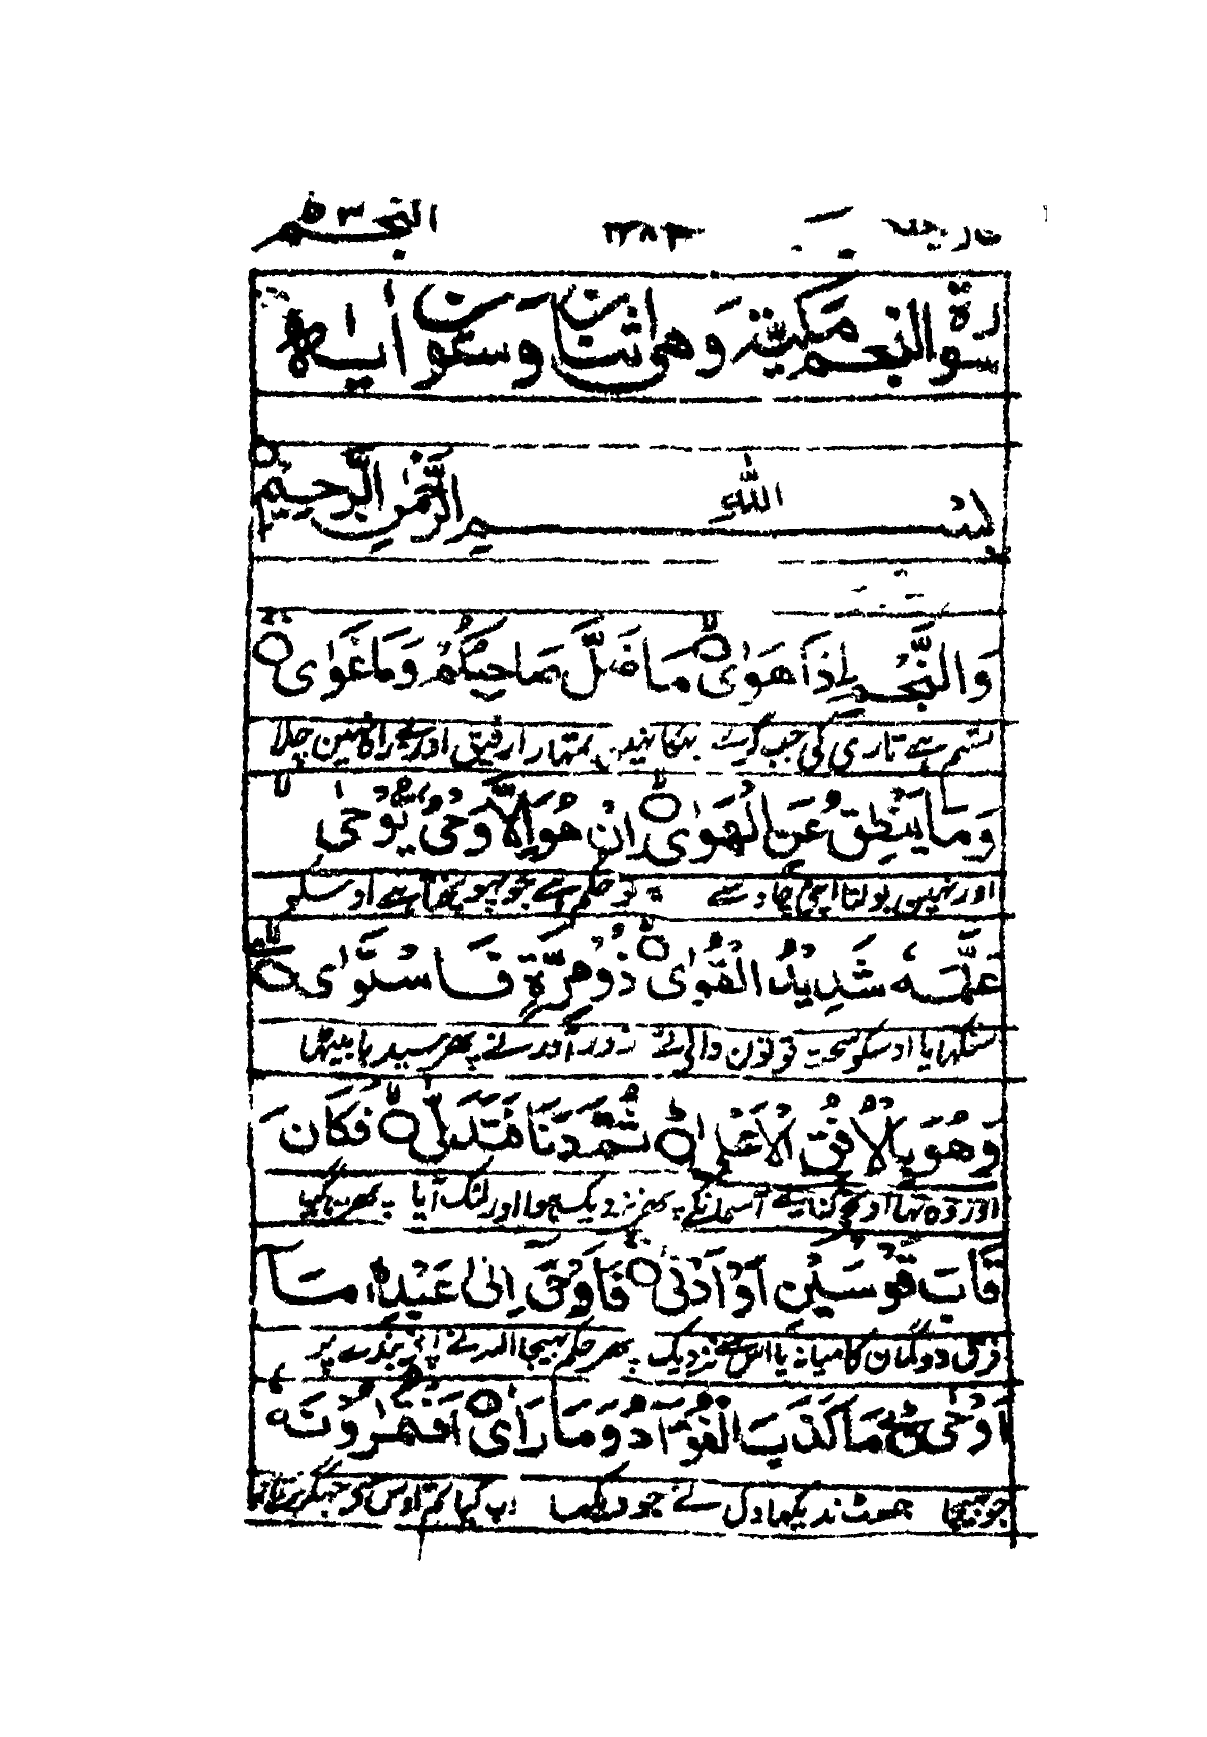 النجم ٥٣ ١٢٨٣
سورة النجم مكية وهي اثنتان وستون آية
بسم الله الرحمن الرحيم
وَالنَّجْمِ إِذَا هَوٰى مَا ضَلَّ صَاحِبُكُمْ وَمَا غَوٰى
قسم ہے تاری کی جب گرے بہکا نہیں تمہارا رفیق اور بے راہ نہیں چلا
وَمَا يَنْطِقُ عَنِ الْهَوٰى اِنْ هُوَ اِلَّا وَحْيٌ يُّوْحٰى
اور نہیں بولتا اپنی چاو سے یہ تو حکم ہے جو پہونچتا ہے اوسکو
عَلَّمَهٗ شَدِيْدُ الْقُوٰى ذُوْ مِرَّةٍ فَاسْتَوٰى
سکہایا اوسکو سخت قوتون والی نے زور آور نے پھر سیدہا بیٹھا
وَهُوَ بِالْاُفُقِ الْاَعْلٰى ثُمَّ دَنَا فَتَدَلّٰى فَكَانَ
اور وہ تہا اونچے کنارے آسمانکے پھر نزدیک ہوا اور لٹک آیا پھر رہ گیا
قَابَ قَوْسَيْنِ اَوْ اَدْنٰى فَاَوْحٰى اِلٰى عَبْدِهٖ مَا
فرق دو کمان کا میانہ یا اس سے نزدیک پھر حکم بھیجا اللہ نے اپنے بندے پر
اَوْحٰى مَا كَذَبَ الْفُؤَادُ مَا رَاٰى اَفَتُمٰرُوْنَهٗ
جو بھیجا جھوٹ ندیکھا دل نے جو دیکھا اب کیا تم اوس سے جھگڑتے